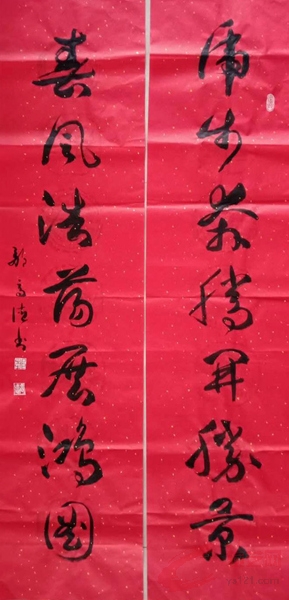 虎步奔腾开胜景
春风浩荡展鸿图